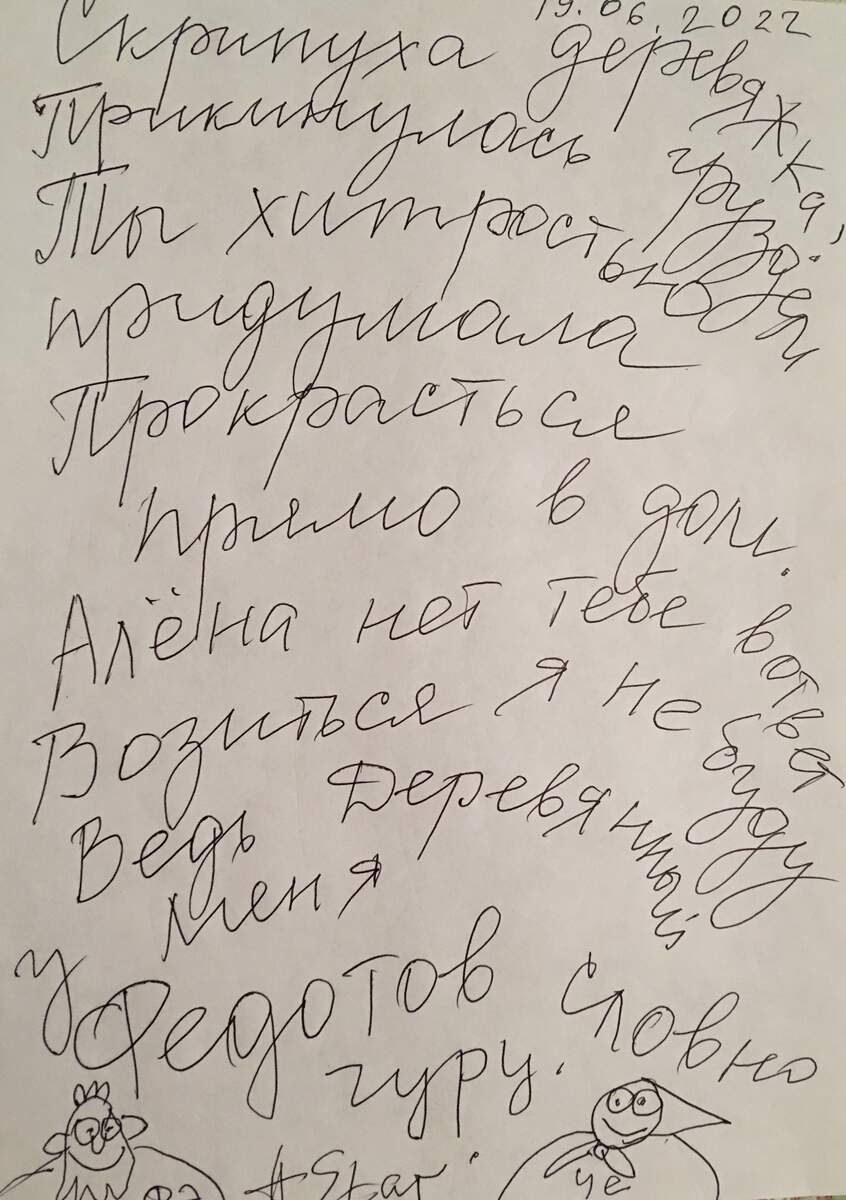 19.06.2022
Скрипуха деревяжка,
Прикинулась груздем
Ты хитрость
придумала
Прокрасться
прямо в дом.
Алёна нет тебе
Возиться я не буду
Ведь Деревянный
у меня
Федотов Словно
гуру.
че